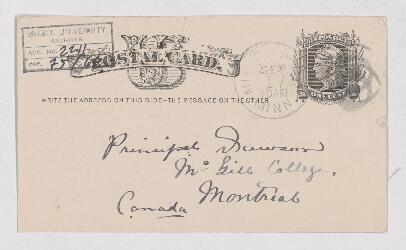 McGILL UNIVERSITY
ARCHIVES
ACC. NO. 2211
REF.
US
POSTAL CARD.
WRITE THE ADDRESS ON THIS SIDE-THE MESSAGE ON THE OTHER
SEP
MINN
ONE CENT
Principal Dawson
McGill College.
Montreal
Canada